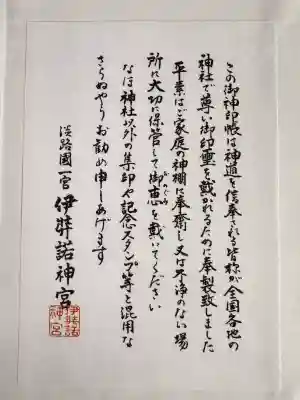 この御神印帳は神道を信奉される皆様が全国各地の
神社で尊い御印璽を戴かれるために奉製致しました
平素はご家庭の神棚に奉斎し又は不浄のない場
所に大切に保管して御恵を戴いてください
なほ神社以外の集印や記念スタンプ等と混用な
さらぬやうお勧め申しあげます
淡路國一宮 伊弉諾神宮
伊弉諾神宮